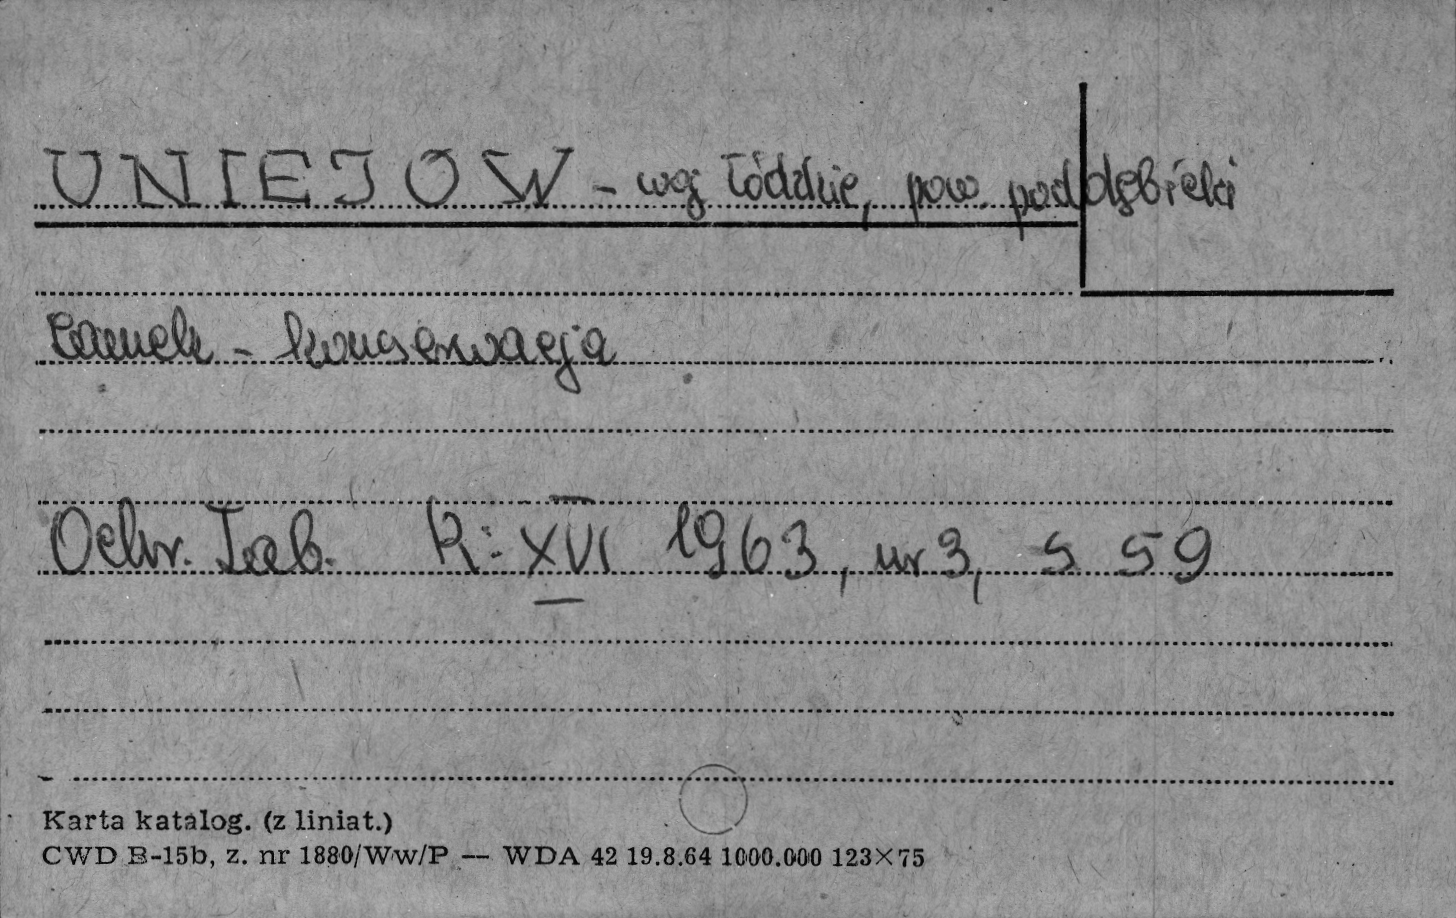 UNIEJOW - woj łódzkie, pow. poddębicki
Zamek - konserwacja
Ochr. Zab. R: XVI 1963, nr 3, s 59
Karta katalog. (z liniat.)
CWD B-15b, z. nr 1880/Ww/P — WDA 42 19.8.64 1000.000 123×75